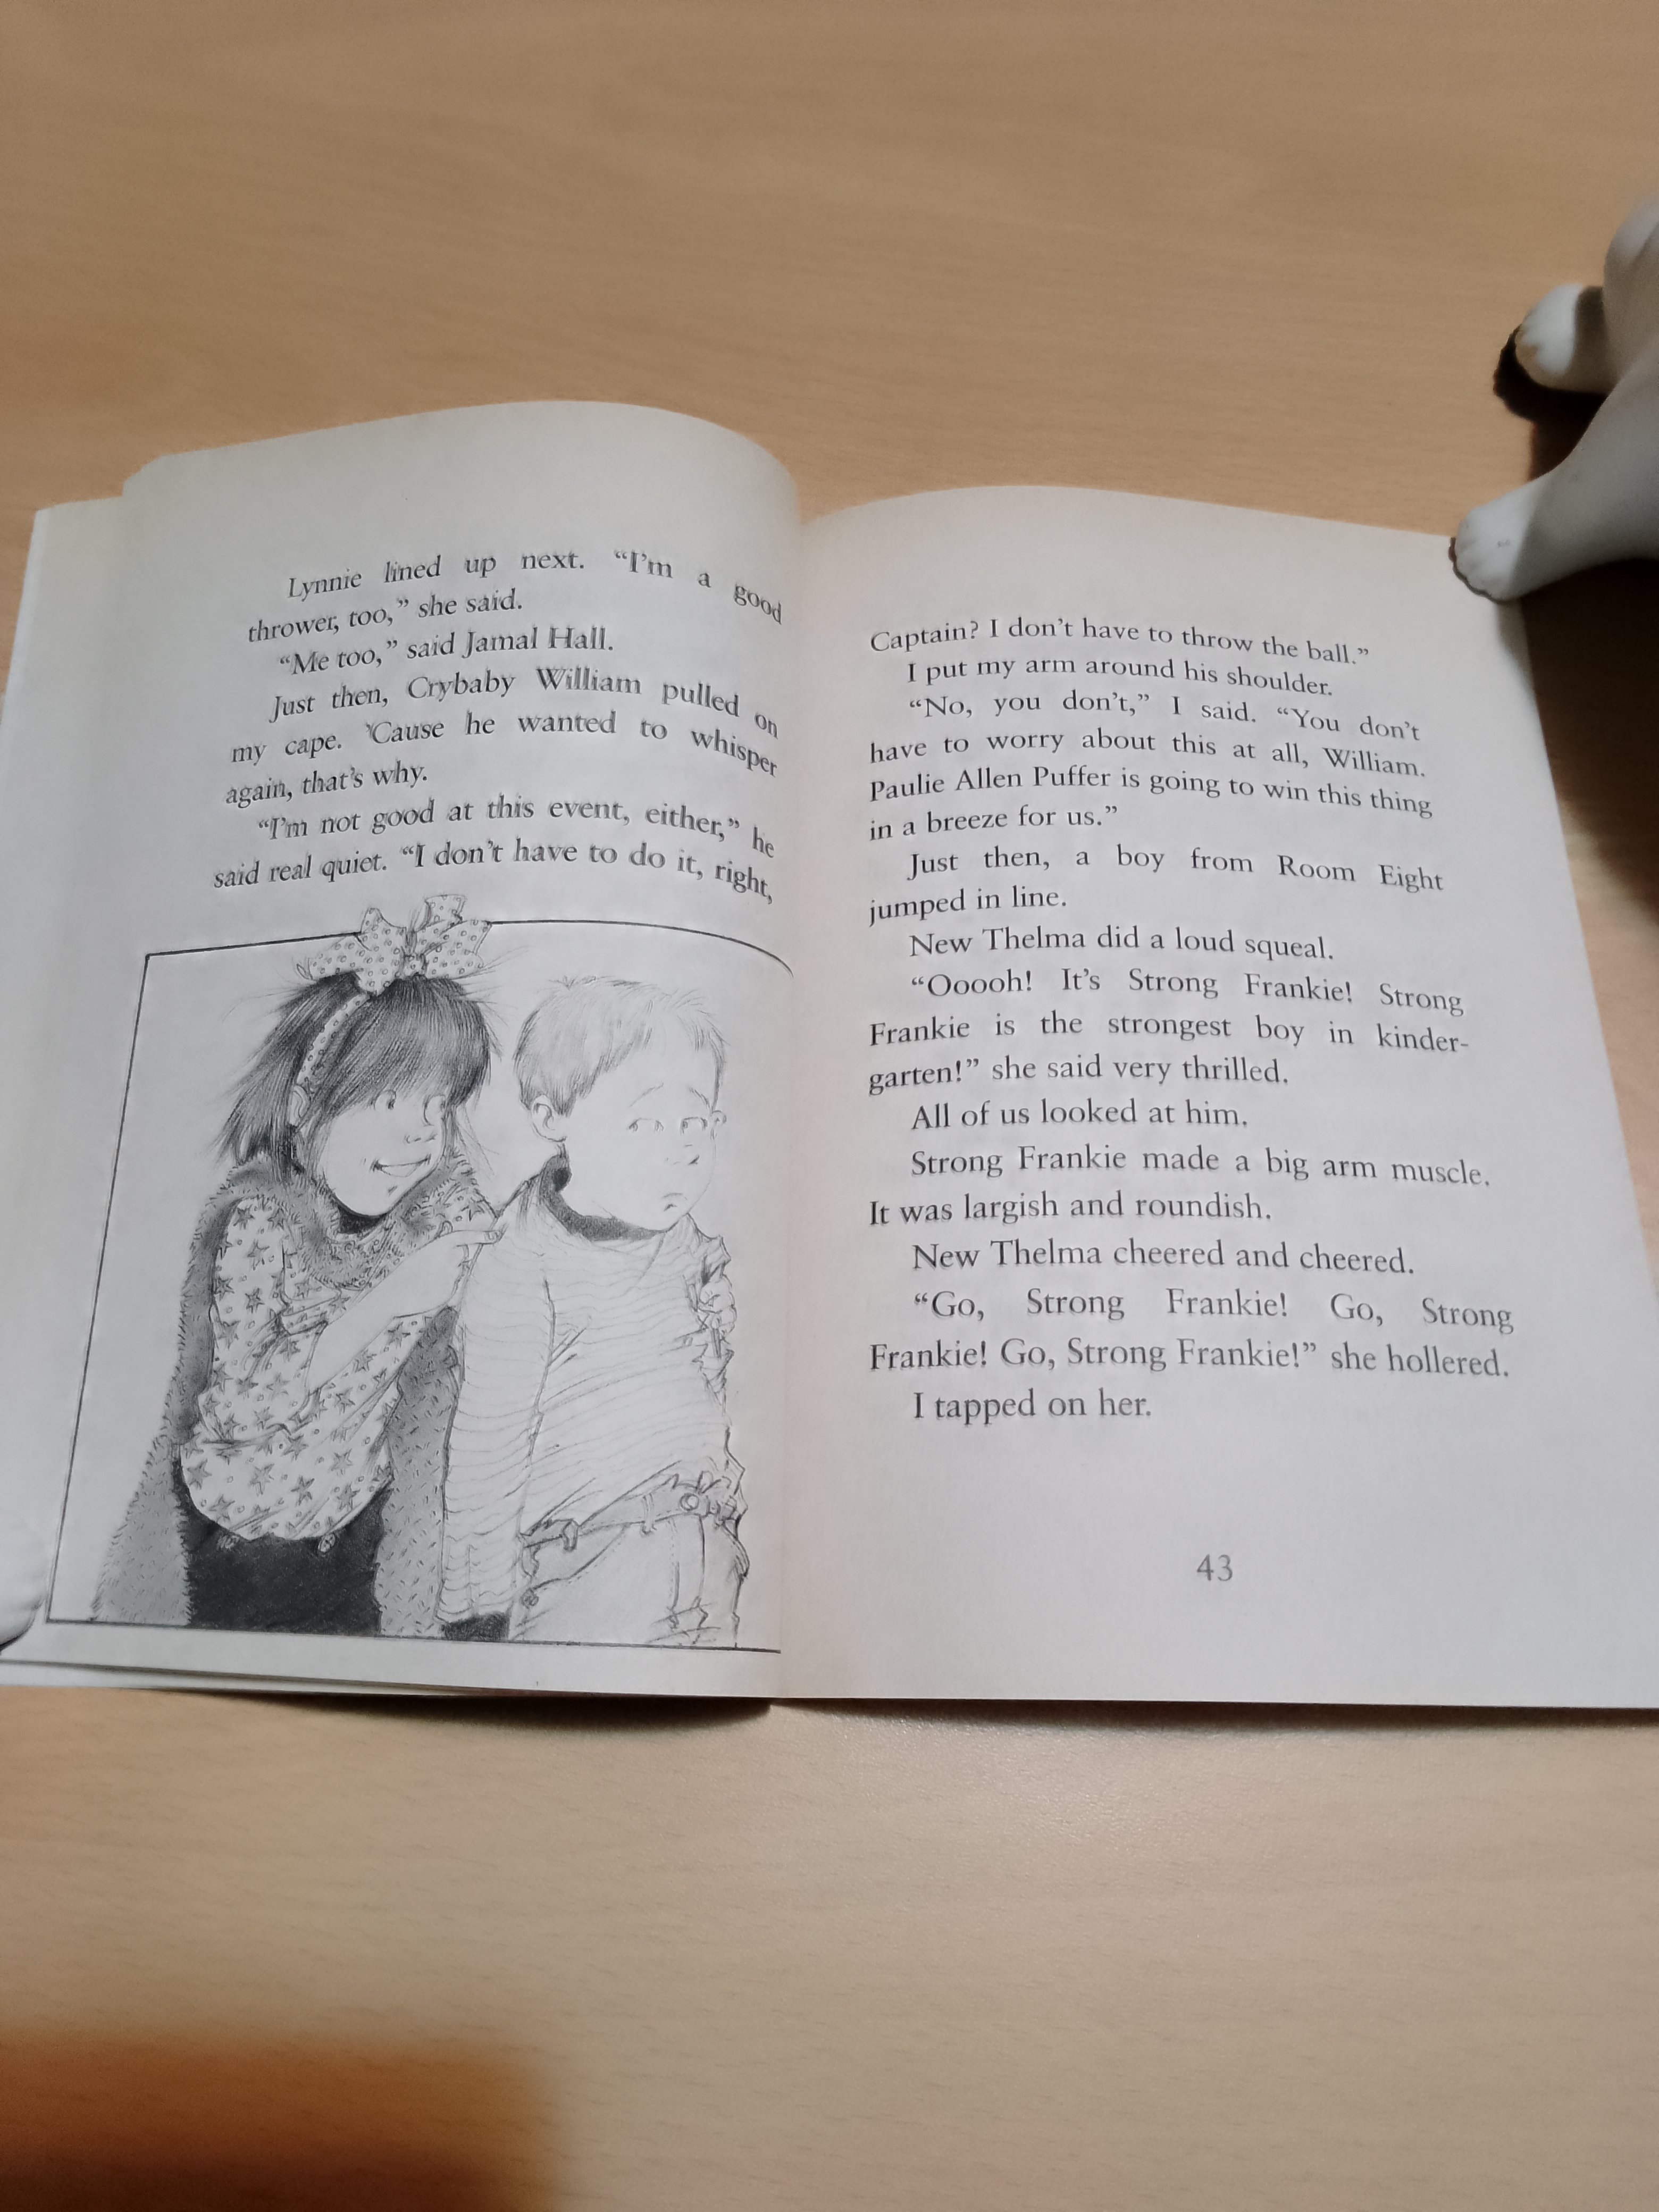 Lynnie lined up next. “I’m a good
thrower, too,” she said.
“Me too,” said Jamal Hall.
Just then, Crybaby William pulled on
my cape. ’Cause he wanted to whisper
again, that’s why.
“I’m not good at this event, either,” he
said real quiet. “I don’t have to do it, right,
Captain? I don’t have to throw the ball.”
I put my arm around his shoulder.
“No, you don’t,” I said. “You don’t
have to worry about this at all, William.
Paulie Allen Puffer is going to win this thing
in a breeze for us.”
Just then, a boy from Room Eight
jumped in line.
New Thelma did a loud squeal.
“Ooooh! It’s Strong Frankie! Strong
Frankie is the strongest boy in kinder-
garten!” she said very thrilled.
All of us looked at him.
Strong Frankie made a big arm muscle.
It was largish and roundish.
New Thelma cheered and cheered.
“Go, Strong Frankie! Go, Strong
Frankie! Go, Strong Frankie!” she hollered.
I tapped on her.
43